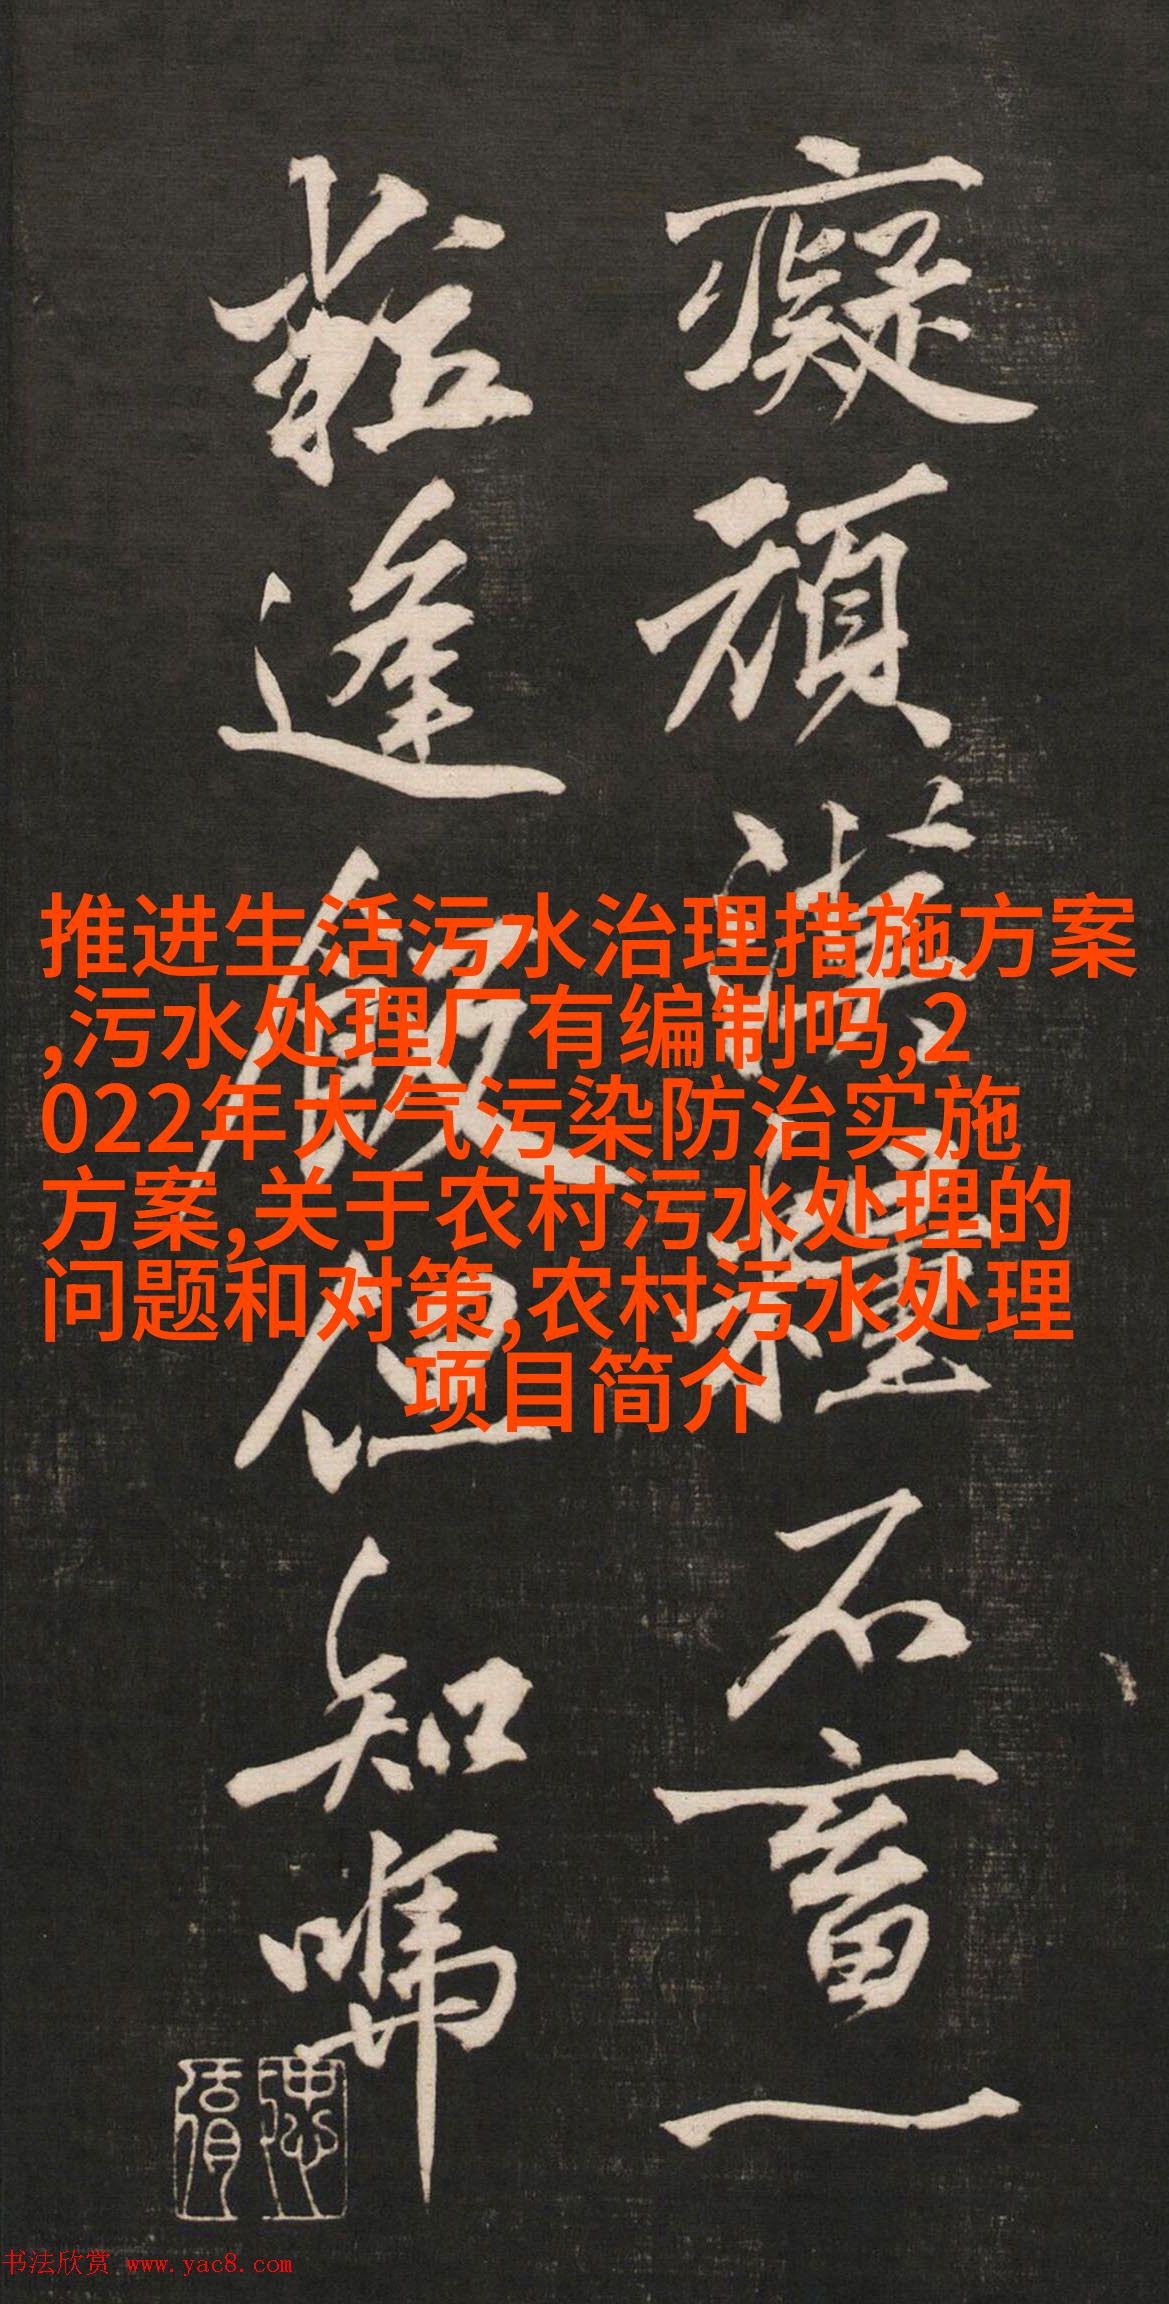 癡頑漢糧不畜一
粒逢飯但知
推进生活污水治理措施方案
,污水处理厂有编制吗,2
022年大气污染防治实施
方案,关于农村污水处理的
问题和对策,农村污水处理
项目简介
书法欣赏 www.yac8.com